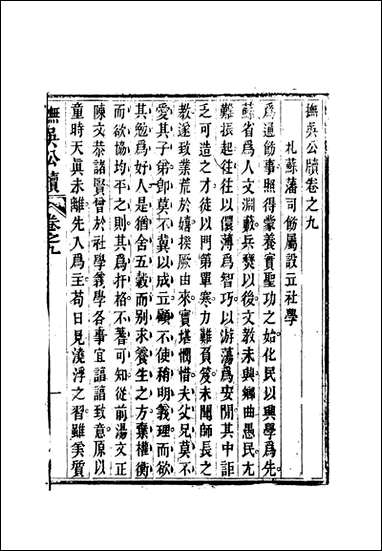 撫吳公牘卷之九
札蘇藩司飭屬設立社學
爲通飭事照得蒙養實聖功之始化民以興學爲先
蘇省爲人文淵藪兵燹以後文教未興鄉曲愚民尢
難振起往往以儇薄爲智巧以游蕩爲安閒其中詎
乏可造之才徒以門第單寒力難負笈未聞師長之
教遂致業荒於嬉揆厥由來實堪憫惜夫父兄莫不
愛其子弟卽莫不冀以成立顧不使稍明義理而欲
其勉爲好人是猶舍五穀而別求養生之方棄權衡
而欲協均平之則其爲扞格不蓍可知從前湯文正
陳文恭諸賢曾於社學義學各事宜諄諄致意原以
童時天眞未離先入爲主苟日見澆浮之習雖美質
撫吳公牘 卷之九 一